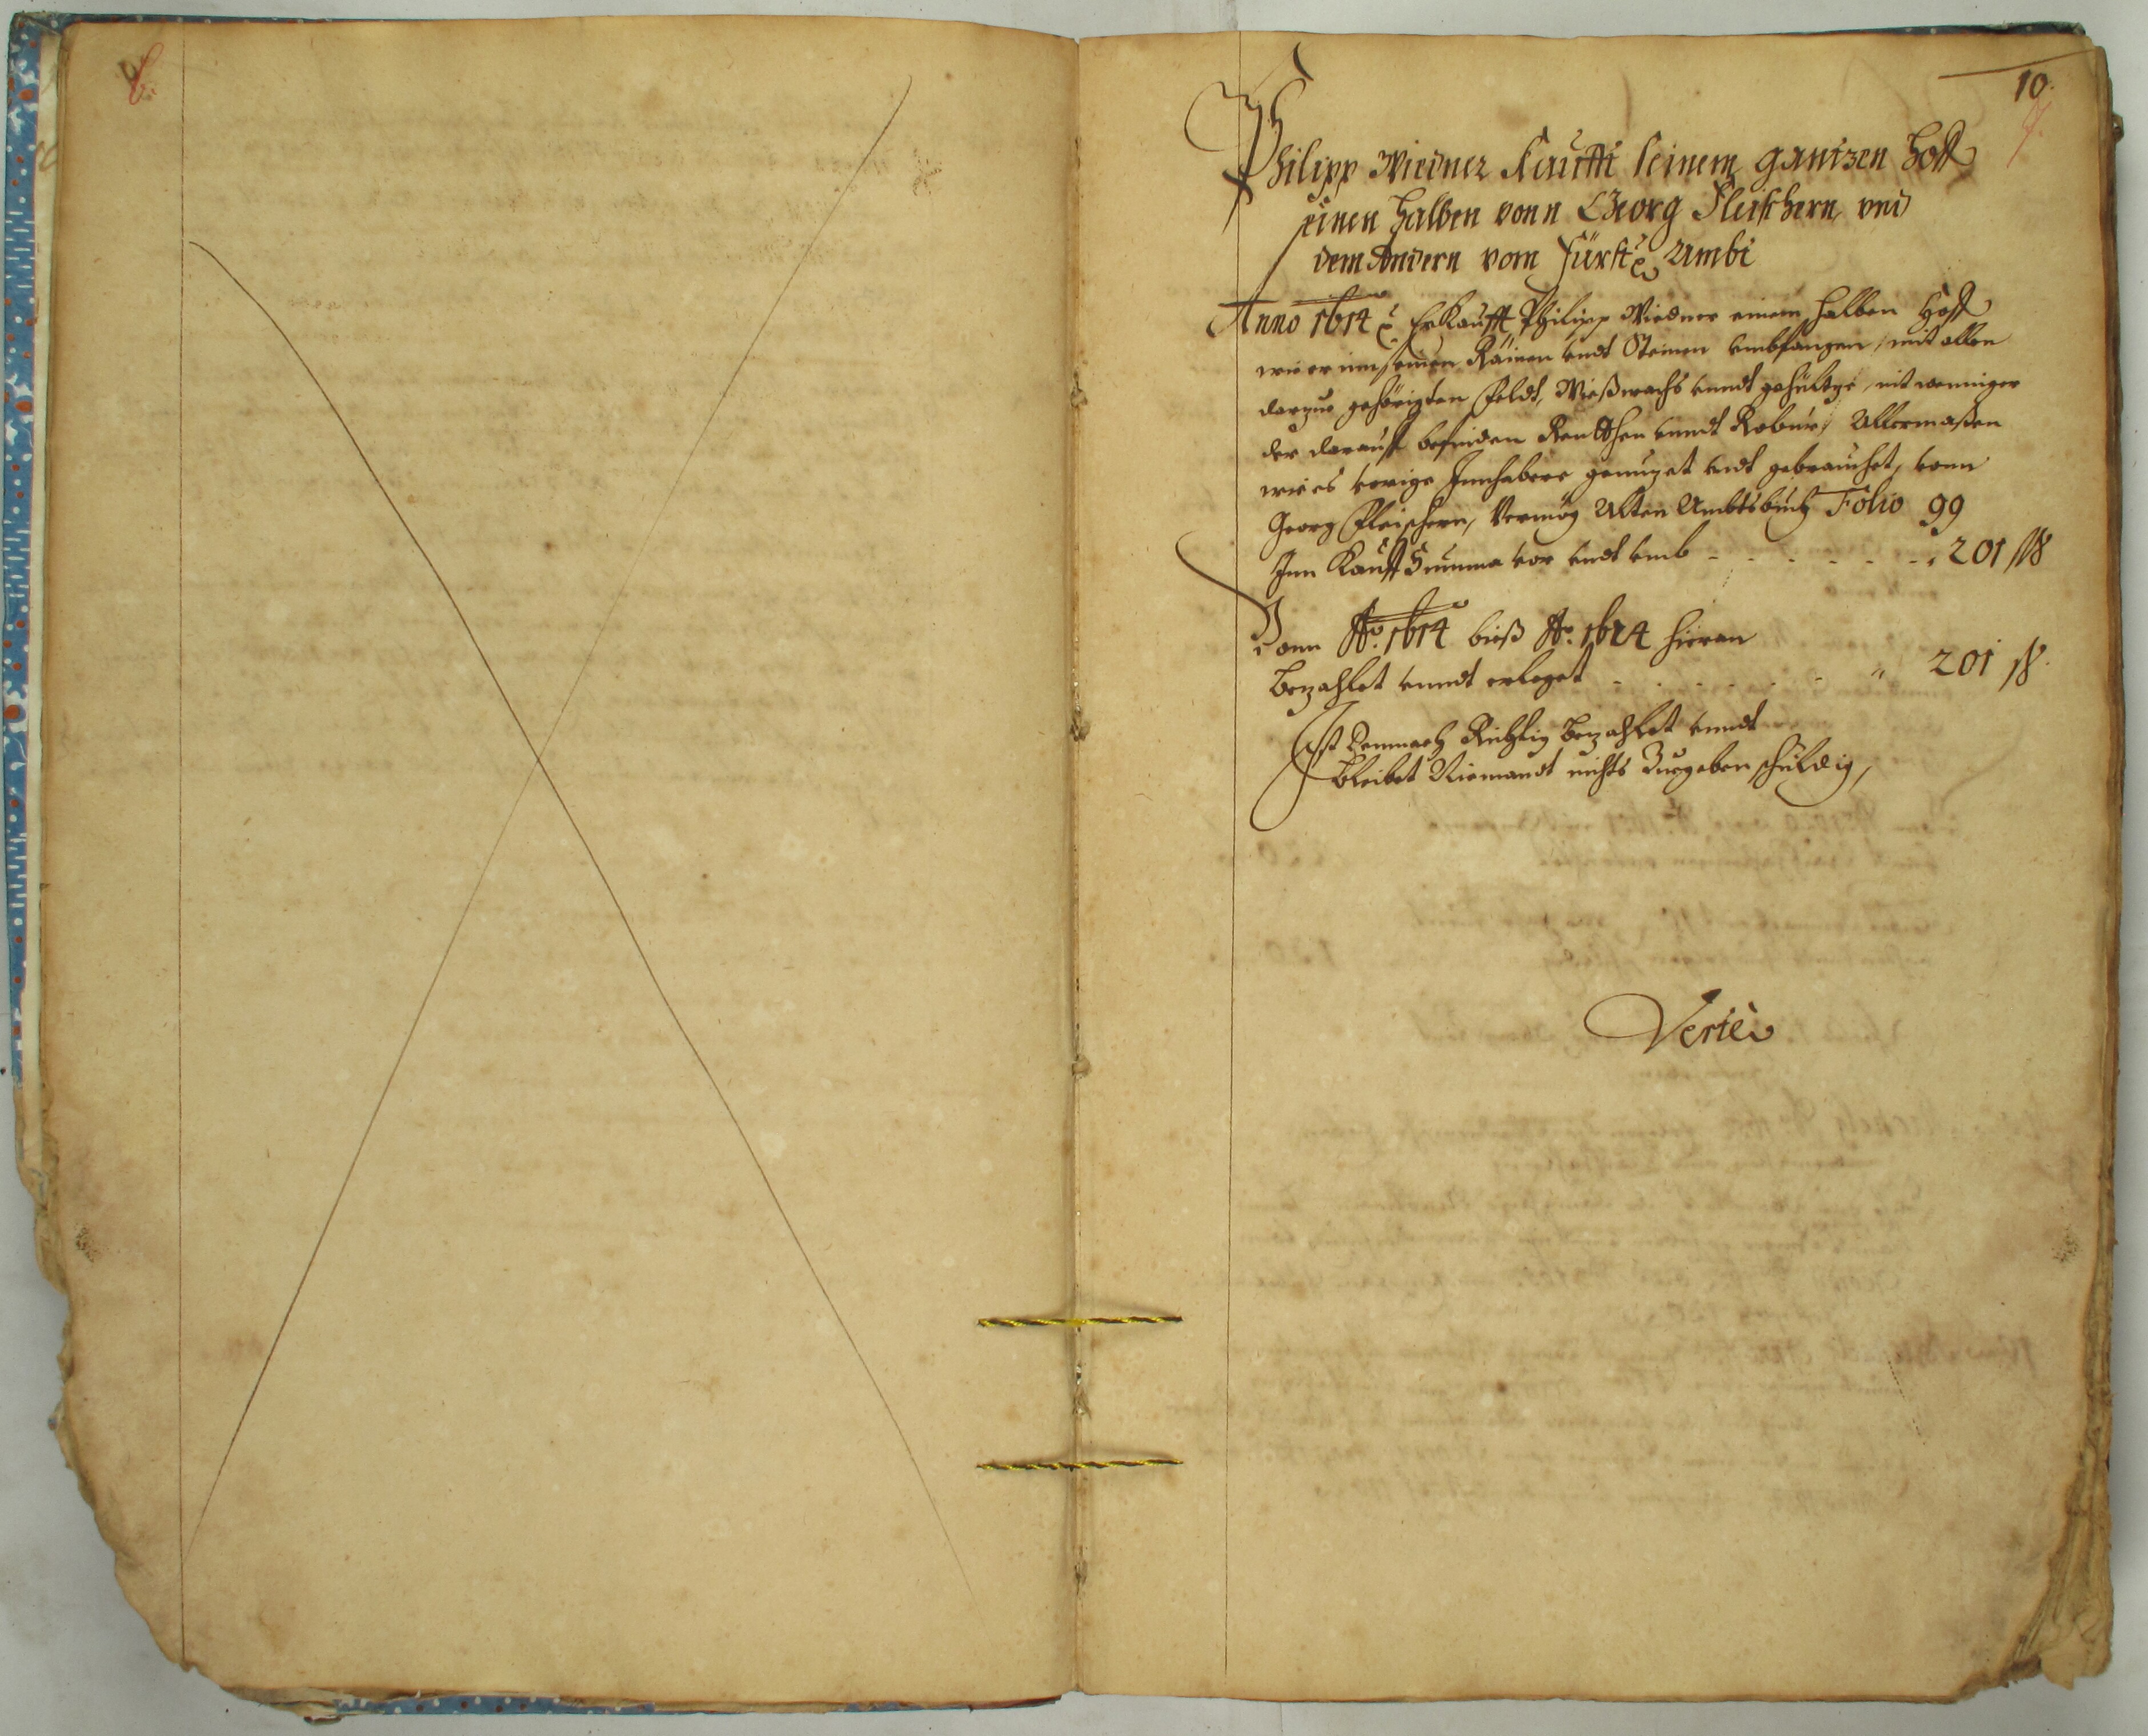 6.
10.
7.
Philipp Wiesner Kaufft seinem gantzen Hoff
einen halben vonn Georg Fleischern, vnd
dem Andern vom Fürstl: Ambt
Anno 1614 Erkaufft Philipp Wiesner einem halben Hoff
wie er inn seinen Räinen vndt Steinen vmbfangen, mit allen
darzue gehörigten Feldt, Wießwachs vnndt gehültze, nit weniger
der darauff befinden vnndt Robür, Allermaßen
wie es vorige Innhabere genuzet vndt gebrauchet, vonn
Georg Fleischern, Vermög Alten Ambtsbuch Folio 99
Inn Kauff Summa vor vndt vmb - - - - - - 201 ßß
Vonn Ao. 1614 bieß Ao. 1624 hieran
Bezahlet vnndt erleget - - - - - - " 201 ß.
Ist Demnach Richtig Bezahlet vnndt
Bleibet Niemandt nichts Zuegeben schuldig,
Verte